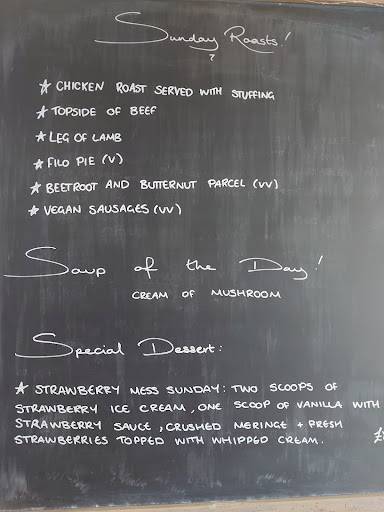 Sunday Roasts!
★ CHICKEN ROAST SERVED WITH STUFFING
★ TOPSIDE OF BEEF
★ LEG OF LAMB
★ FILO PIE (V)
★ BEETROOT AND BUTTERNUT PARCEL (VV)
★ VEGAN SAUSAGES (VV)
Soup of the Day!
CREAM OF MUSHROOM
Special Dessert:
★ STRAWBERRY MESS SUNDAY: TWO SCOOPS OF
STRAWBERRY ICE CREAM, ONE SCOOP OF VANILLA WITH
STRAWBERRY SAUCE, CRUSHED MERINGE + FRESH
STRAWBERRIES TOPPED WITH WHIPPED CREAM. £